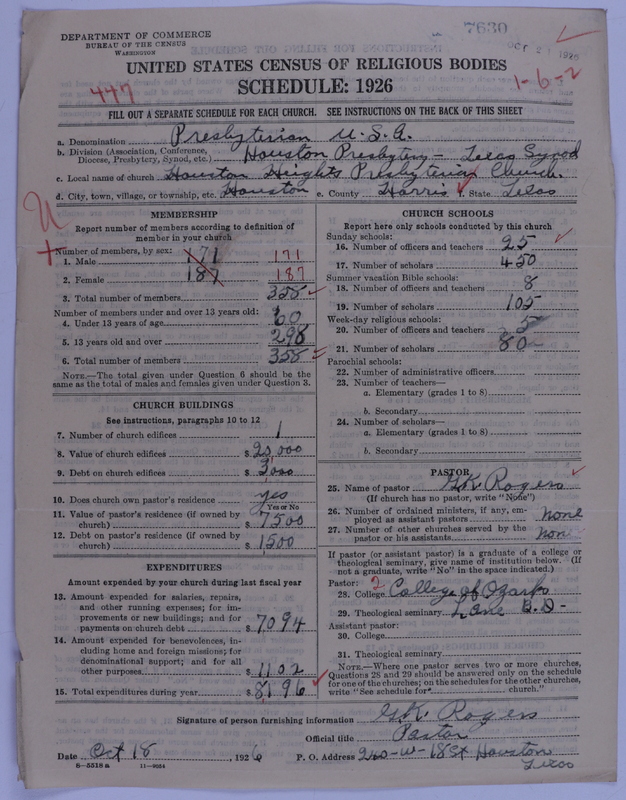 7630
DEPARTMENT OF COMMERCE
BUREAU OF THE CENSUS
WASHINGTON
OCT 21 1926
UNITED STATES CENSUS OF RELIGIOUS BODIES
SCHEDULE: 1926
447
1-6-2
FILL OUT A SEPARATE SCHEDULE FOR EACH CHURCH. SEE INSTRUCTIONS ON THE BACK OF THIS SHEET
a. Denomination Presbyterian U.S.A.
b. Division (Association, Conference, Diocese, Presbytery, Synod, etc.) Houston Presbytery - Texas Synod
c. Local name of church Houston Heights Presbyterian Church.
d. City, town, village, or township, etc. Houston e. County Harris f. State Texas
MEMBERSHIP
Report number of members according to definition of
member in your church
Number of members, by sex:
1. Male 171 171
2. Female 187 187
3. Total number of members 358
Number of members under and over 13 years old:
4. Under 13 years of age 60
5. 13 years old and over 298
6. Total number of members 358
NOTE.—The total given under Question 6 should be
same as the total of males and females given under Question 3.
CHURCH BUILDINGS
See instructions, paragraphs 10 to 12
7. Number of church edifices 1
8. Value of church edifices $ 20,000
9. Debt on church edifices $ 3000
10. Does church own pastor's residence yes
Yes or No
11. Value of pastor's residence (if owned by
church) $ 7500
12. Debt on pastor's residence (if owned by
church) $ 1500
EXPENDITURES
Amount expended by your church during last fiscal year
13. Amount expended for salaries, repairs,
and other running expenses; for im-
provements or new buildings; and for
payments on church debt $ 7094
14. Amount expended for benevolences, in-
cluding home and foreign missions; for
denominational support; and for all
other purposes $ 1102
15. Total expenditures during year $ 8196
CHURCH SCHOOLS
Report here only schools conducted by this church
Sunday schools:
16. Number of officers and teachers 25
17. Number of scholars 450
Summer vacation Bible schools:
18. Number of officers and teachers 8
19. Number of scholars 105
Week-day religious schools:
20. Number of officers and teachers 5
21. Number of scholars 80
Parochial schools:
22. Number of administrative officers
23. Number of teachers—
a. Elementary (grades 1 to 8)
b. Secondary
24. Number of scholars—
a. Elementary (grades 1 to 8)
b. Secondary
PASTOR
25. Name of pastor G.K. Rogers
(If church has no pastor, write "None")
26. Number of ordained ministers, if any, em-
ployed as assistant pastors none
27. Number of other churches served by the
pastor or his assistants none
If pastor (or assistant pastor) is a graduate of a college or
theological seminary, give name of institution below. (If
not a graduate, write "No" in the space indicated.)
Pastor: 2
28. College College of Ozarks
29. Theological seminary Lane B.D -
Assistant pastor:
30. College
31. Theological seminary
NOTE.—Where one pastor serves two or more churches,
Questions 28 and 29 should be answered only on the schedule
for one of the churches; on the schedules for the other churches,
write "See schedule for church."
Signature of person furnishing information G.K. Rogers
Official title Pastor
Date Oct 18, 1926 P. O. Address 240-W-18 St Houston
Texas
8-5518 a 11-9054